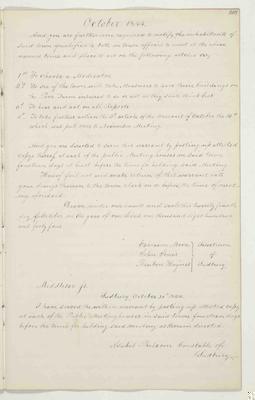 October 1844.
And you are further more required to notify the inhabitants of
said town qualified to vote in town affairs to meet at the above
named time and place to act on the following articles viz,
1st To choose a Moderator
2d To see if the town will take Measures to have
the Poor Farm insured to do or act as they shall think best
3d To hear and act on all Reports
4th To take further action the 5th article of the Warrant of October the 14th
which was put over to November Meeting
And you are directed to serve this warrant by posting up attested
copys thereof at each of the public Meeting houses in said Town
fourteen days at least before the time for holding said Meeting
Hereof fail not and make return of this warrant with
your doings thereon to the town clerk on or before the time of meet
ing aforesaid
Given under our hands and seals this twenty
day of October in the year of our Lord one thousand eight hundred
and forty four
Selectmen
of
Reuben Haynes Sudbury
Middlesex ss.
Sudbury October 1844
I have served the within warrant by posting up attested copys
at each of the Public Meeting houses in said Town fourteen days
before the time for holding said meeting as therein directed
Constable of
Sudbury